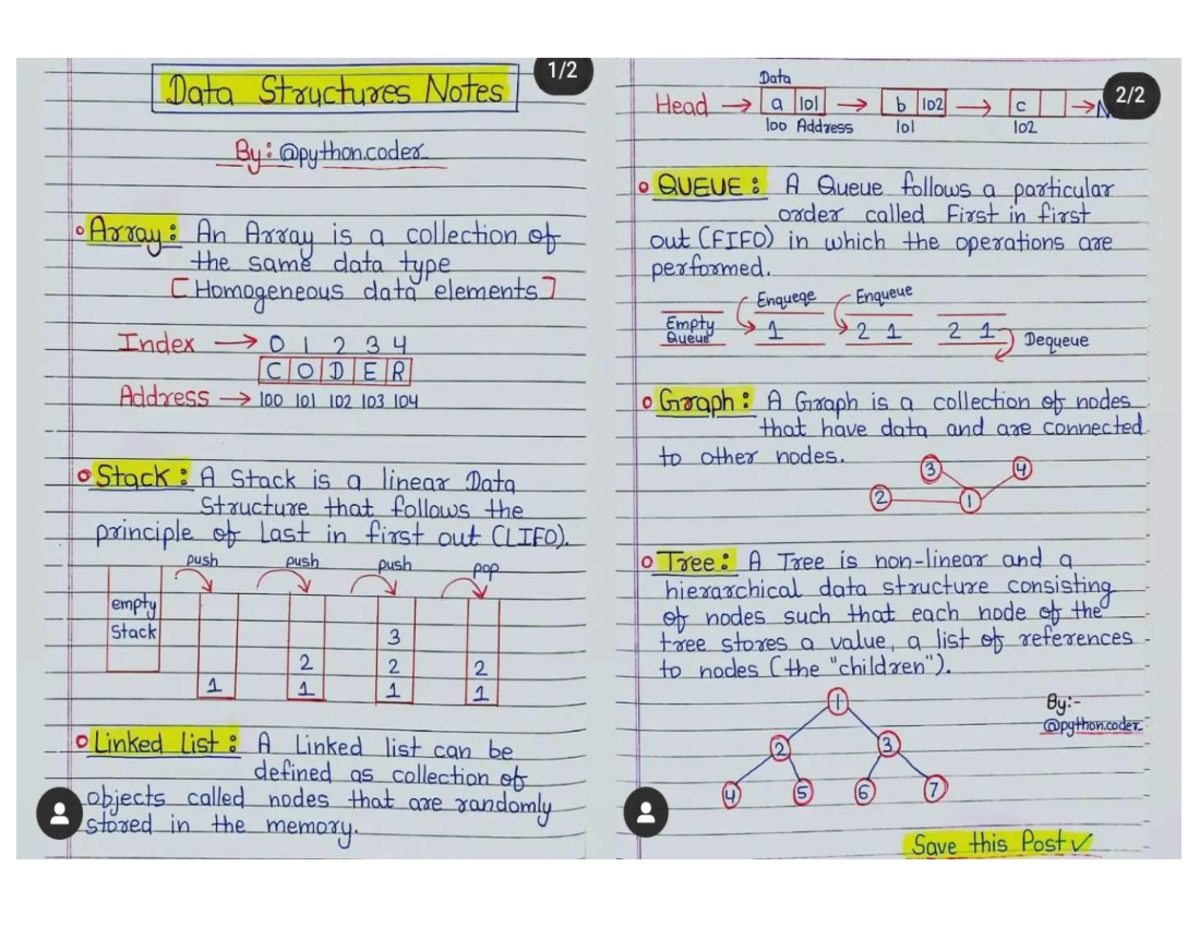 Data Structures Notes
1/2
By: @python.coder
Array: An Array is a collection of
the same data type
[Homogeneous data elements]
Index → 0 1 2 3 4
C O D E R
Address → 100 101 102 103 104
Stack: A Stack is a linear Data
Structure that follows the
principle of Last in first out (LIFO).
push push push pop
empty
Stack
3
2 2 2
1 1 1 1
Linked list: A Linked list can be
defined as collection of
objects called nodes that are randomly
stored in the memory.
Data
2/2
Head → a 101 → b 102 → c → N
100 Address 101 102
QUEUE: A Queue follows a particular
order called First in first
out (FIFO) in which the operations are
performed.
Enqueqe Enqueue
Empty 1 2 1 2 1
Queue Dequeue
Graph: A Graph is a collection of nodes
that have data and are connected
to other nodes.
3 4
2 1
Tree: A Tree is non-linear and a
hierarchical data structure consisting
of nodes such that each node of the
tree stores a value, a list of references
to nodes (the "children").
1
By:-
@python.coder
2 3
4 5 6 7
Save this Post ✓